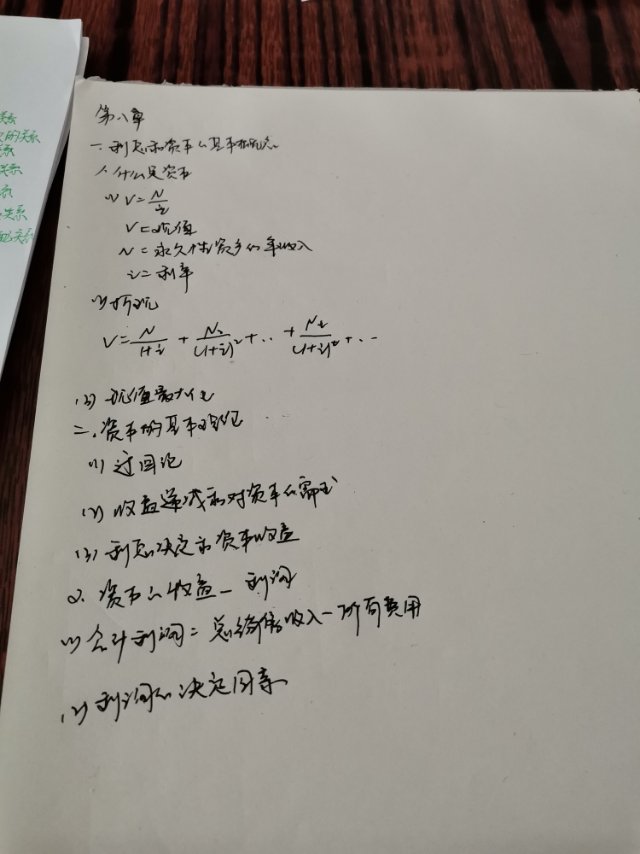 第八章
一、利息和资本的基本概念
1.什么是资本
(1) V=N/i
V=现值
N=永久性资产的年收入
i=利率
(2)折现
V=N/(1+i)+N₂/(1+i)²+…+Nₜ/(1+i)ᵗ+…
(3)现值最大化
二、资本的基本理论
(1)迂回论
(2)收益递减和对资本的需求
(3)利息决定和资本收益
2.资本的收益—利润
(1)会计利润=总销售收入-所有费用
(2)利润的决定因素
关系
的关系
关系
关系
系
关系
关系